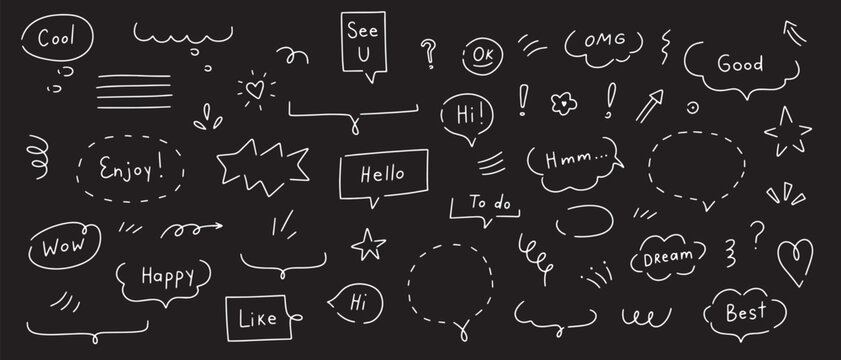 Cool
See
U
?
OK
OMG
Good
Hi!
!
!
Enjoy!
Hello
Hmm...
To do
Wow
Happy
Dream
?
Like
Hi
Best